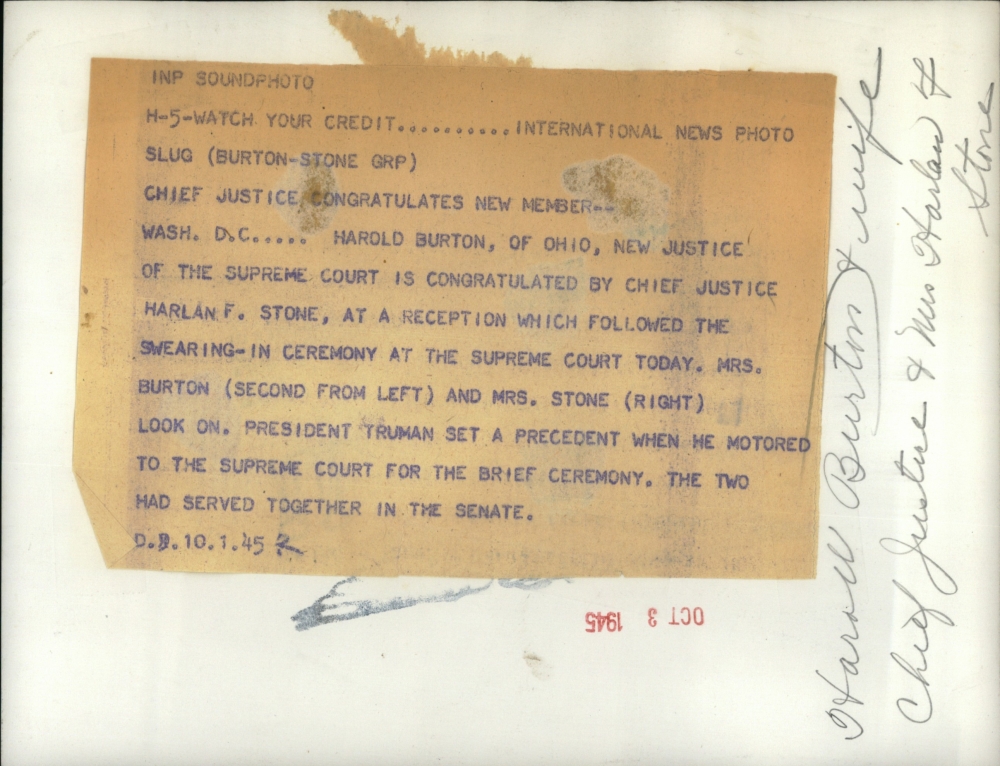 INP SOUNDPHOTO
H-5-WATCH YOUR CREDIT..........INTERNATIONAL NEWS PHOTO
SLUG (BURTON-STONE GRP)
CHIEF JUSTICE CONGRATULATES NEW MEMBER--
WASH. D.C..... HAROLD BURTON, OF OHIO, NEW JUSTICE
OF THE SUPREME COURT IS CONGRATULATED BY CHIEF JUSTICE
HARLAN F. STONE, AT A RECEPTION WHICH FOLLOWED THE
SWEARING-IN CEREMONY AT THE SUPREME COURT TODAY. MRS.
BURTON (SECOND FROM LEFT) AND MRS. STONE (RIGHT)
LOOK ON. PRESIDENT TRUMAN SET A PRECEDENT WHEN HE MOTORED
TO THE SUPREME COURT FOR THE BRIEF CEREMONY. THE TWO
HAD SERVED TOGETHER IN THE SENATE.
10.1.45
OCT 3 1945
Harold Burton & wife
Chief Justice & Mrs Harlan F
Stone